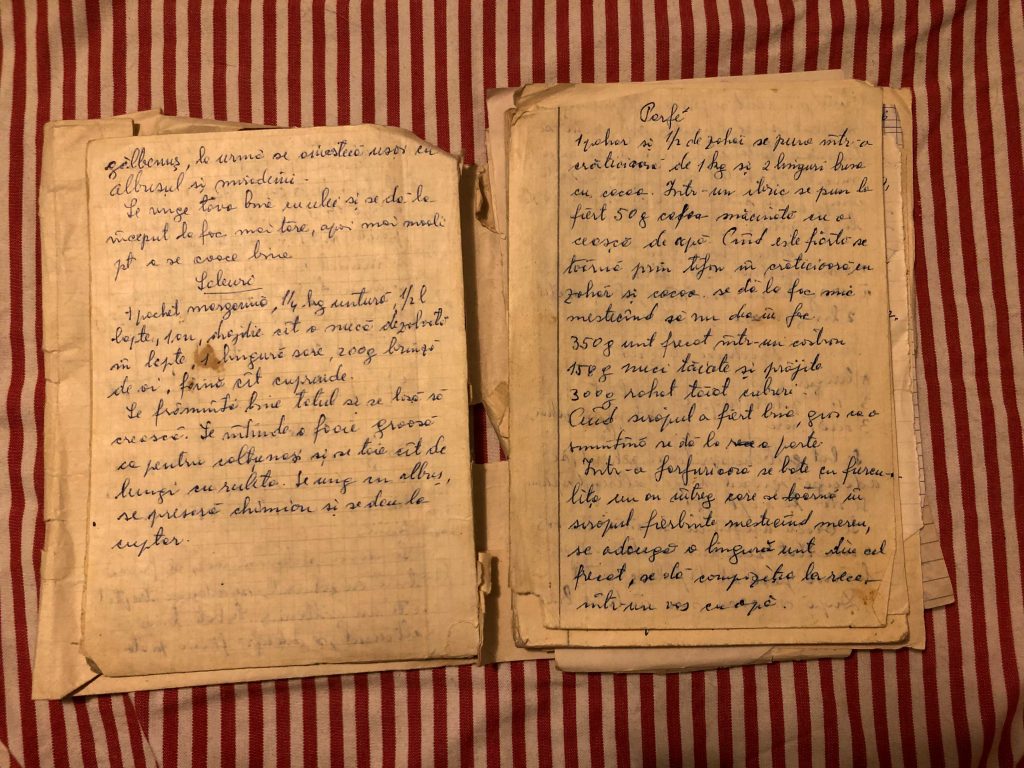 gălbenuș, la urmă se amestecă ușor cu
albușul și mirodenii.
Se unge tava bine cu ulei și se dă la
început la foc mai tare, apoi mai moale
pt a se coace bine
Saleuri
1 pachet margarină, 1/4 kg untură, 1/2 l
lapte, 1 ou, drojdie cît o nucă dizolvată
în lapte, 1 lingură sare, 200g brînză
de oi, faină cît cuprinde.
Se frămîntă bine totul și se lasă să
crească. Se întinde o foaie groasă
ca pentru colțunași și se taie cît de
lungi cu ruleta. Se ung cu albuș,
se presară chimion și se dau la
cuptor.
Parfé
1 pahar și 1/2 de zahăr se pune într-o
crăticioară de 1 kg și 2 linguri
cu cacao. Într-un ibric se pun la
fiert 50g cafea măcinată cu o
ceașcă de apă. Cînd este fiartă se
toarnă prin tifon în crăticioară cu
zahăr și cacao. se dă la foc mic
mestecînd să nu dea în foc
350g unt frecat într-un castron
150g nuci tăiate și prăjite
300g rahat tăiat cuburi.
Cînd siropul a fiert bine, gros ca o
smîntînă se dă la o parte
Într-o farfurioară se bate cu furcu-
lița un ou întreg care se toarnă în
siropul fierbinte mestecînd mereu,
se adaugă o lingură unt din cel
frecat, se dă compoziția la rece,
într-un vas cu apă